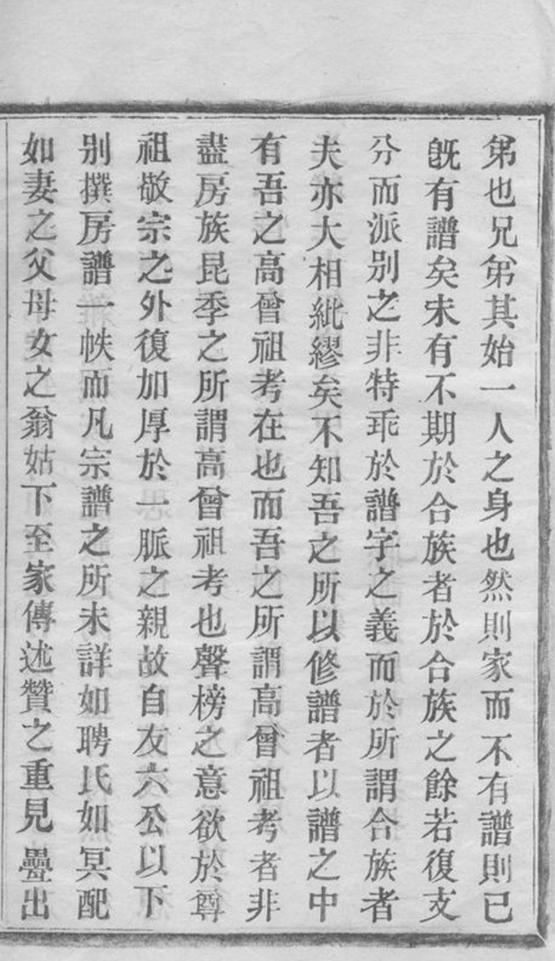 弟也兄弟其始一人之身也然則家而不有譜則已
旣有譜矣未有不期於合族者於合族之餘若復支
分而派別之非特乖於譜字之義而於所謂合族者
夫亦大相紕繆矣不知吾之所以修譜者以譜之中
有吾之高曾祖考在也而吾之所謂高曾祖考者非
盡房族昆季之所謂高曾祖考也聲榜之意欲於尊
祖敬宗之外復加厚於一脈之親故自友六公以下
別撰房譜一帙而凡宗譜之所未詳如聘氏如冥配
如妻之父母女之翁姑下至家傳述贊之重見疊出